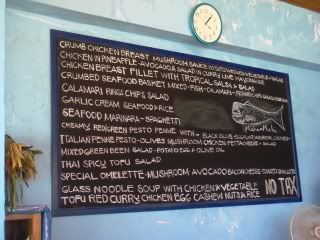 CRUMB CHICKEN BREAST MUSHROOM SAUCE POTATO WEDGES VEGETABLE SALAD
CHICKEN IN PINEAPPLE AVOCADO & SALAD IN CURRY LIME MAYONNAISE
CHICKEN BREAST FILLET WITH TROPICAL SALSA & SALAD
CRUMBED SEAFOOD BASKET MIXED FISH CALAMARI
CALAMARI RINGS CHIPS SALAD
GARLIC CREAM SEAFOOD & RICE
SEAFOOD MARINARA - SPAGHETTI
CREAMY RED GREEN PESTO PENNE WITH - BLACK OLIVE
ITALIAN PENNE PESTO - OLIVES MUSHROOM CHICKEN FETTACHEESE - SALAD
MIXED GREEN BEEN SALAD - POTATO EGG & OLIVE OIL
THAI SPICY TOFU SALAD
SPECIAL OMELLETTE - MUSHROOM AVOCADO BACON CHEESE TOMATO
GLASS NOODLE SOUP WITH CHICKEN & VEGETABLE
TOFU RED CURRY CHICKEN EGG CASHEW NUTS & RICE
NO TAX